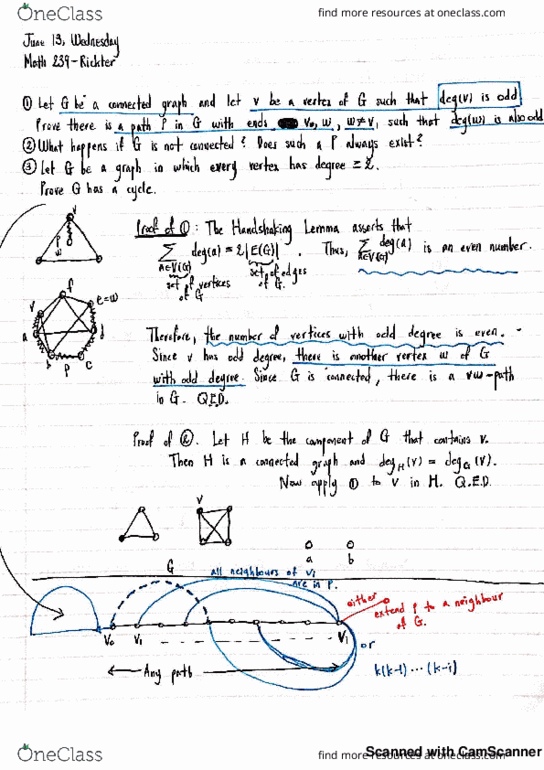 OneClass
find more resources at oneclass.com
June 13, Wednesday
Math 239-Richter
① Let G be a connected graph and let v be a vertex of G such that deg(v) is odd
Prove there is a path P in G with ends v₀, w, w≠v, such that deg(w) is also odd
② What happens if G is not connected? Does such a P always exist?
③ Let G be a graph in which every vertex has degree = 2.
Prove G has a cycle.
v
P
w
Proof of ①: The Handshaking Lemma asserts that
∑ deg(a) = 2|E(G)|. Thus, ∑ deg(a) is an even number.
A∈V(G)
a∈V(G)
set of vertices of G
set of edges of G.
f
v
e=w
a
d
b
P
c
Therefore, the number of vertices with odd degree is even.
Since v has odd degree, there is another vertex w of G
with odd degree. Since G is connected, there is a vw-path
in G. Q.E.D.
Proof of ②. Let H be the component of G that contains v.
Then H is a connected graph and deg_H(v) = deg_G(v).
Now apply ① to v in H. Q.E.D.
v
a
b
G
all neighbours of Vi
are in P.
either
extend P to a neighbour
of G.
V₀
V₁
Vi
or
Any path
k(k-1) ... (k-i)
OneClass
find more resources at oneclass.com
Scanned with CamScanner